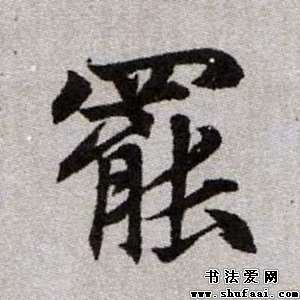 罷
书法爱网
www.shufaai.com